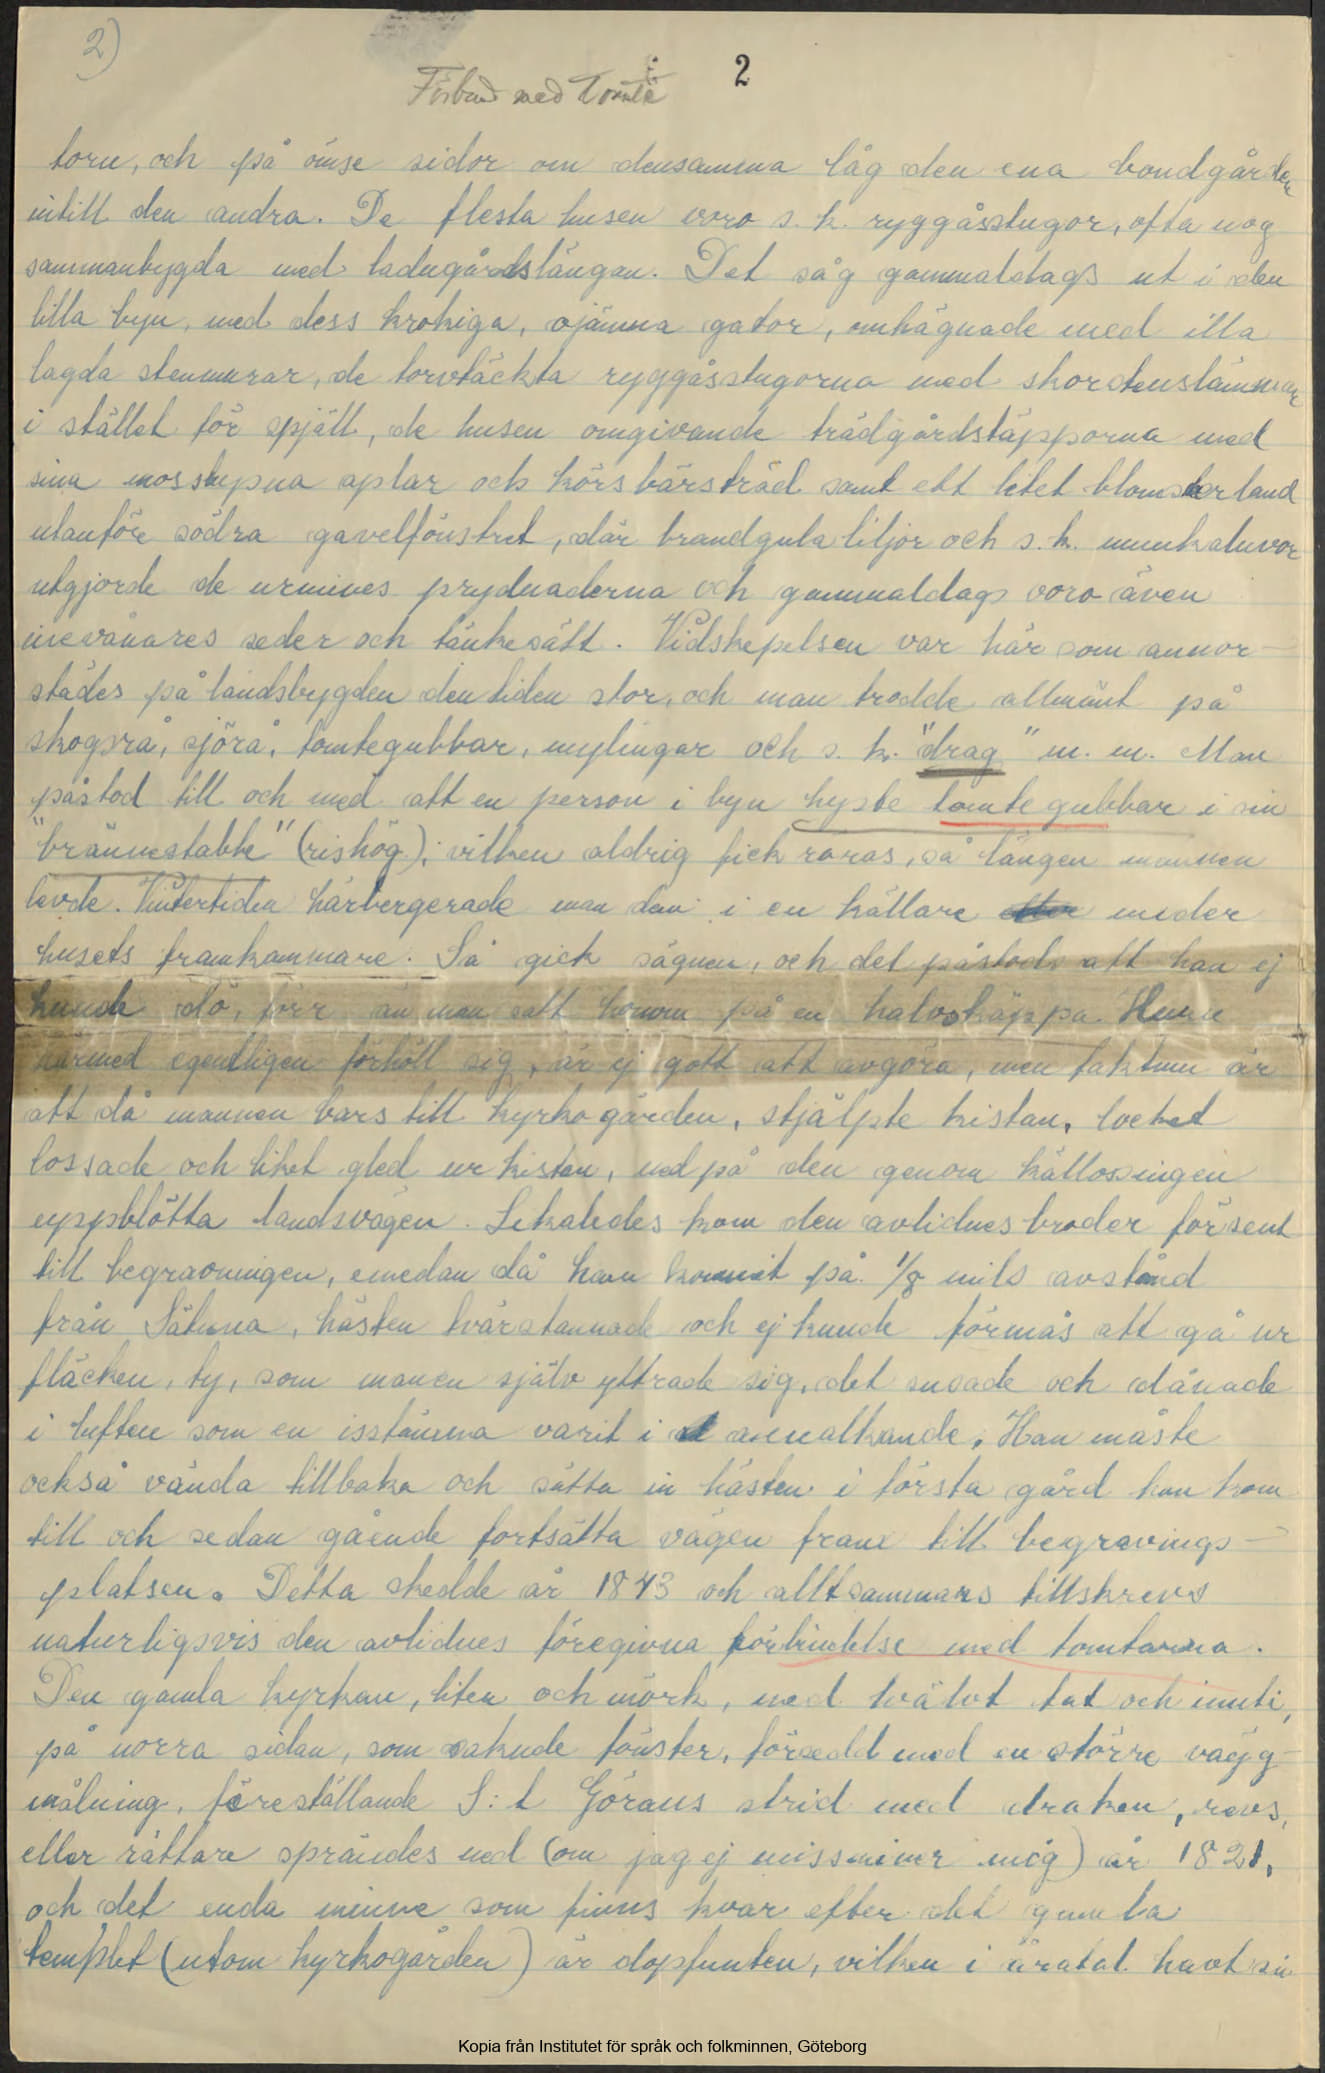 2)
2
Förbund med Tomte
torn, och på ömse sidor om densamma låg den ena bondgården
intill den andra. De flesta husen voro s. k. ryggåsstugor, ofta nog
sammanbygda med ladugårdslängan. Det såg gammaldags ut i den
lilla byn, med dess krokiga, ojämna gator, omhägnade med illa
lagda stenmurar, de torvtäckta ryggåsstugorna med skorstenslämmar
i stället för spjäll, de husen omgivande trädgårdstäpporna med
sina mosslupna aplar och körsbärsträd samt ett litet blomsterland
utanför södra gavelfönstret, där brandgula liljor och s. k. munkaluvor
utgjorde de urminnes prydnaderna och gammaldags voro även
inevånares seder och tänkesätt. Vidskepelsen var här som annor-
städes på landsbygden den tiden stor, och man trodde allmänt på
skogsrå, sjörå, tomtegubbar, mylingar och s. k. "drag" m. m. Man
påstod till och med att en person i byn hyste tomtegubbar i sin
"brännestabbe" (rishög), vilken aldrig fick röras, så länge mannen
levde. Vintertiden härbergerade man dem i en källare under
husets framkammare. Så gick sägnen, och det påstods att han ej
kunde dö, förr än man satt honom på en halvskäppa. Huru
härmed egentligen förhöll sig, är ej gott att avgöra, men faktum är
att då mannen bars till kyrkogården, stjälpte kistan, locket
lossade och liket gled ur kistan, ned på den genom källossningen
uppblötta landsvägen. Likaledes kom den avlidnes broder försent
till begravningen, emedan då han kommit på 1/8 mils avstånd
från Sätuna, hästen tvärstannade och ej kunde förmås att gå ur
fläcken, ty, som mannen själv yttrade sig, det susade och dånade
i luften som en isstämma varit i annalkande. Han måste
också vända tillbaka och sätta in hästen i första gård han kom
till och sedan gående fortsätta vägen fram till begravnings-
platsen. Detta skedde år 1843 och alltsammans tillskrevs
naturligsvis den avlidnes föregivna förbindelse med tomtarna.
Den gamla kyrkan, liten och mörk, med välvt tak och inuti,
på norra sidan, som saknade fönster, försedd med en större vägg-
målning, föreställande S:t Görans strid med draken, revs,
eller rättare sprändes ned (om jag ej missminner mig) år 1821,
och det enda minne som finns kvar efter det gamla
templet (utom kyrkogården) är dopfunten, vilken i åratal havt sin
Kopia från Institutet för språk och folkminnen, Göteborg